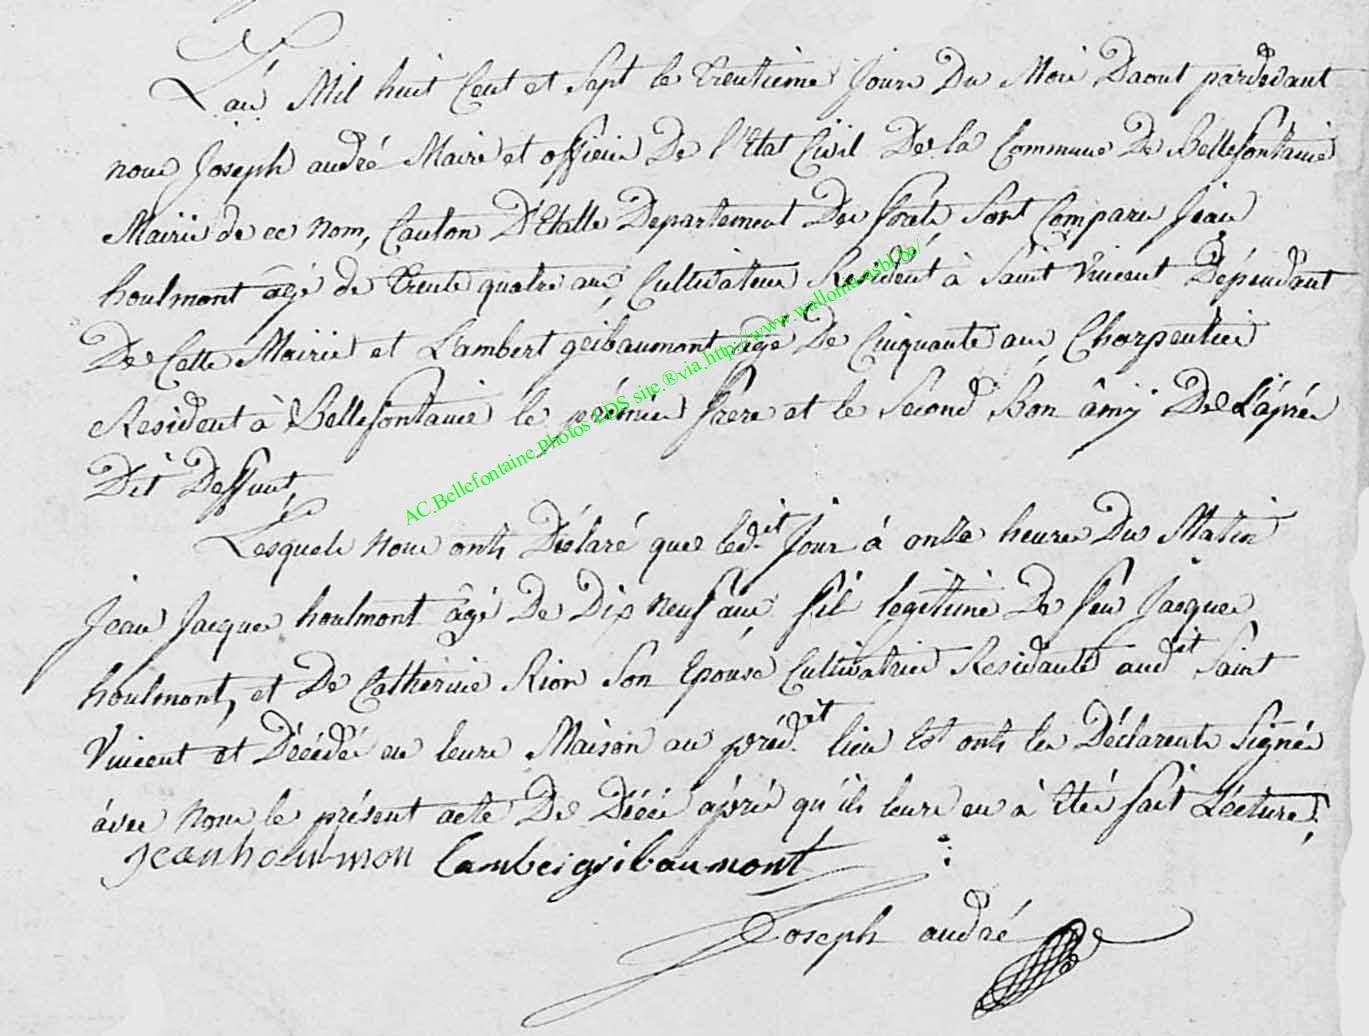 L'an Mil huit Cent et Sept le trentième Jour Du Moi Daout pardevant
nous Joseph andré Maire et officier De l'Etat Civil De la Commune De Bellefontaine
Mairie de ce nom, Canton D'Etalle Departement Des forets, Sont Comparu Jean
houlmont âgé de trente quatre ans, Cultivateur Résident à Saint Vincent Dépendant
De Cette Mairie et Lambert gribaumont âgé De Cinquante ans, Charpentier
Resident à Bellefontaine le prémier frere et le Second Bon âmÿ De L'âprés
Dit Deffunt,
Lesquels nous onts Déclaré que led.it Jour à onze heures Du Matin
Jean Jacques houlmont âgé De Dix neuf ans fils legitime De feu Jacques
houlmont, et De Catherine Rion Son Epouse Cultivatrice Residante aud.it Saint
Vincent et Décédé en leurs Maison au préd.it lieu Et onts les Déclarents Signés
ávec nous le présent acte De Décé áprés qu'ils leurs en à Etés fait Lécture,
jean houlmon Lamber gribaumont
Joseph andré
AC.Bellefontaine.Photos EDS site.®via.http://www.wallonia-asbl.be/